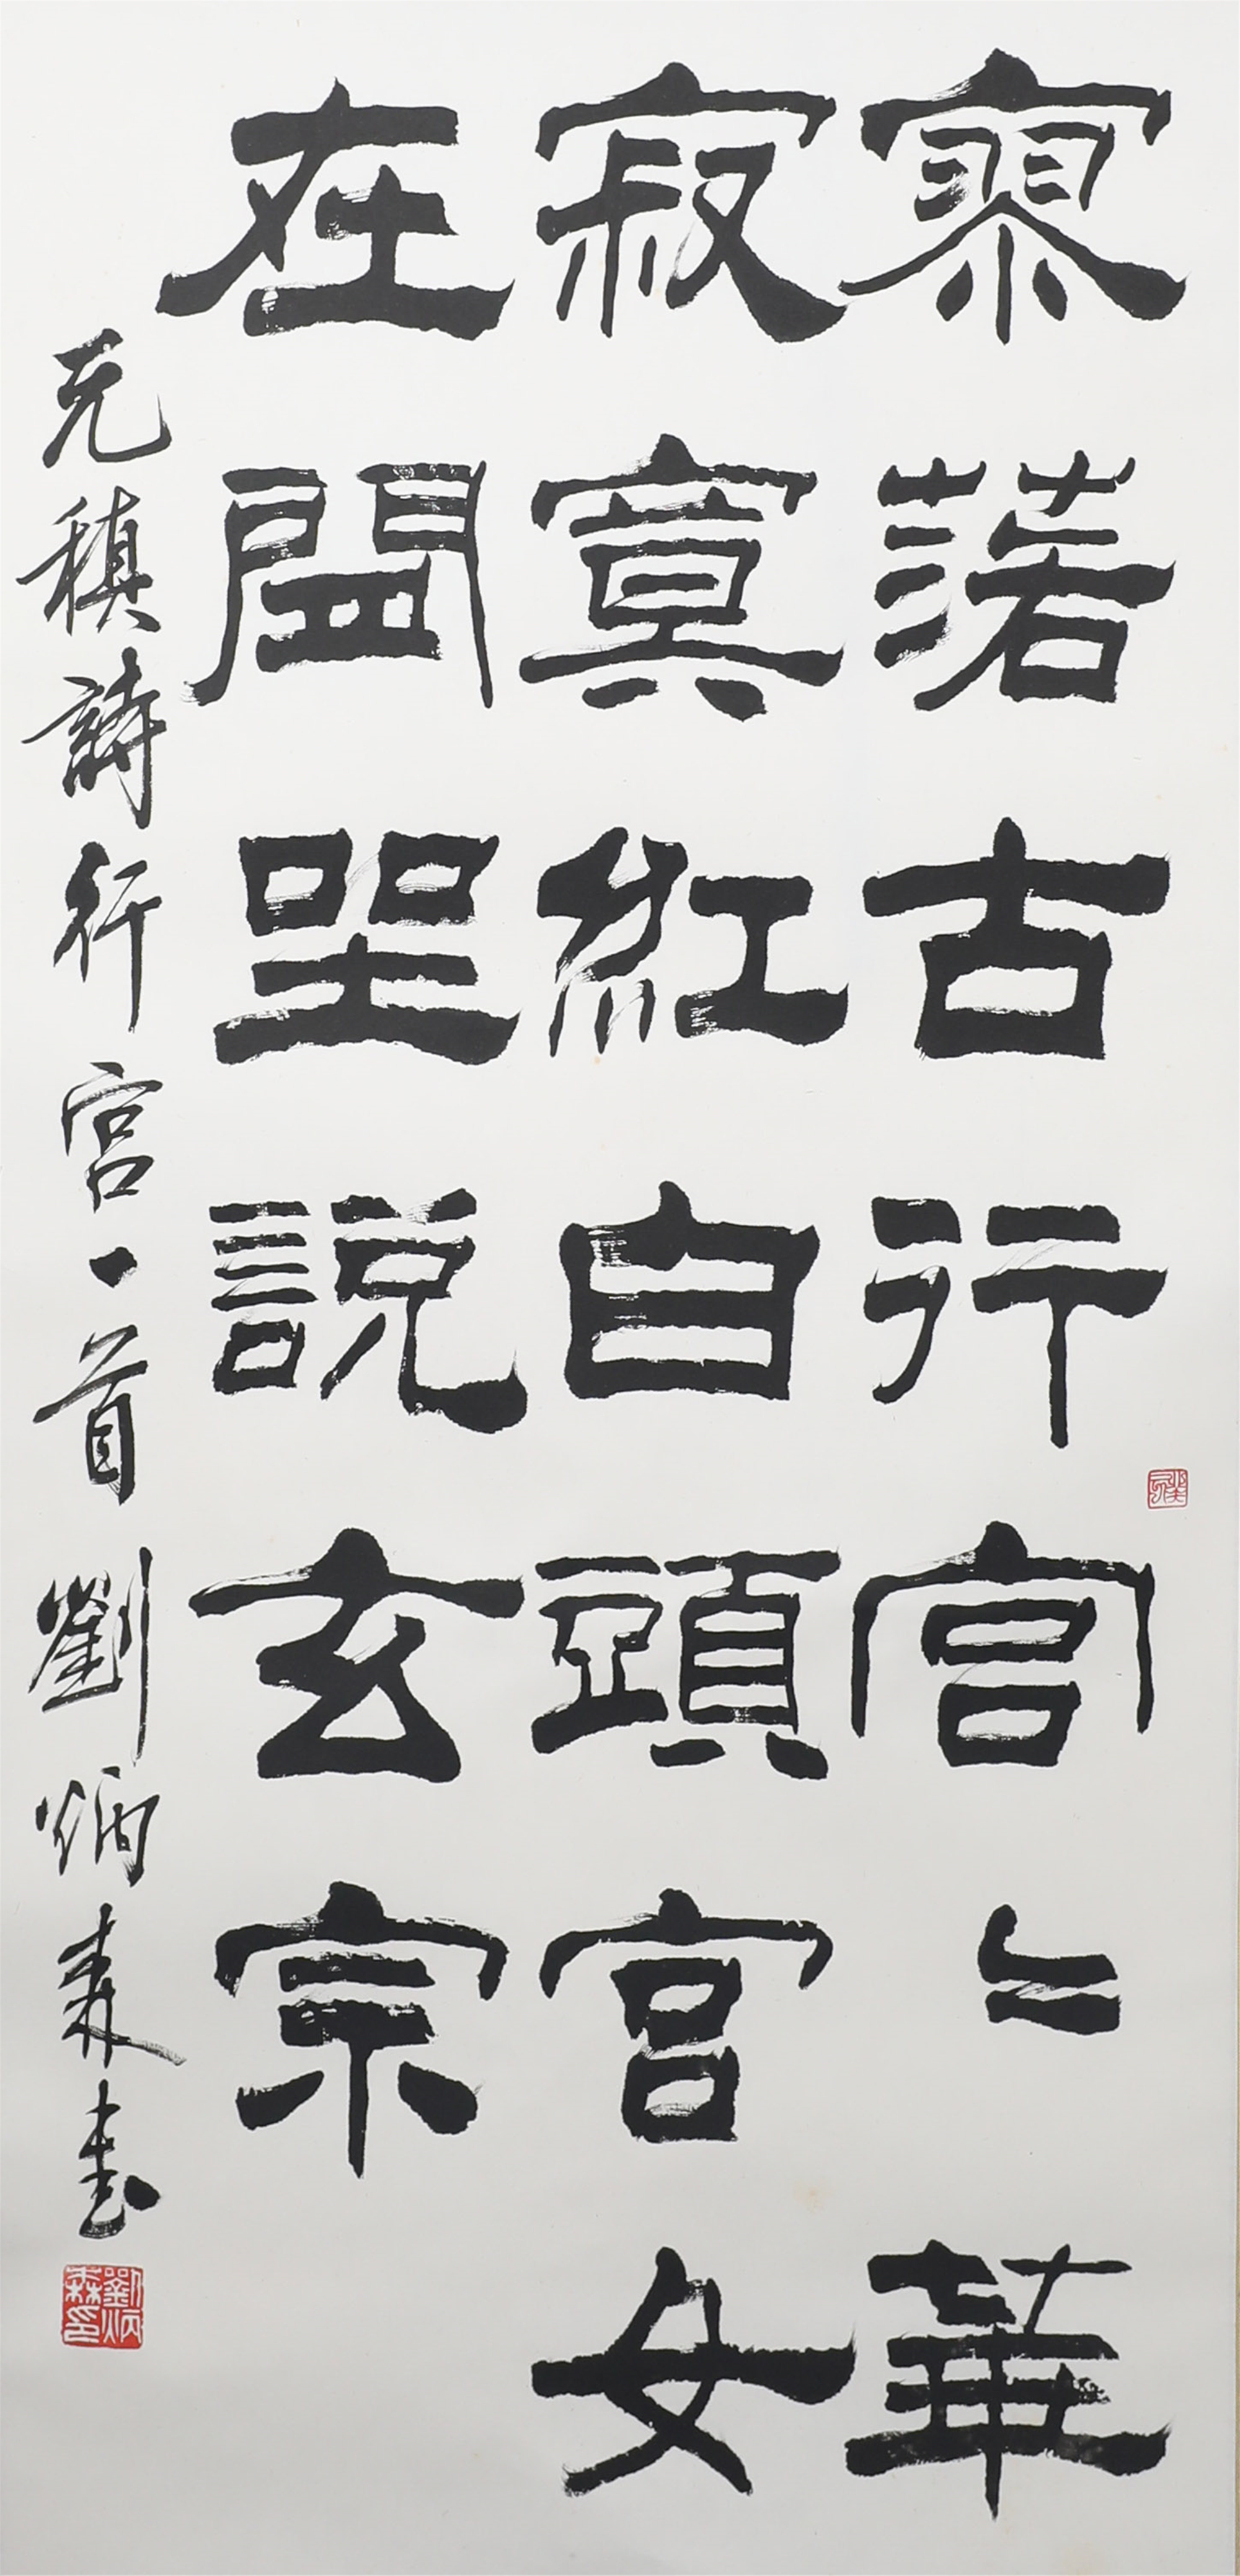 寥落古行宮々華
寂寞紅白頭宮女
在閒坐説玄宗
元稹詩行宮一首 劉炳森書
劉炳森印